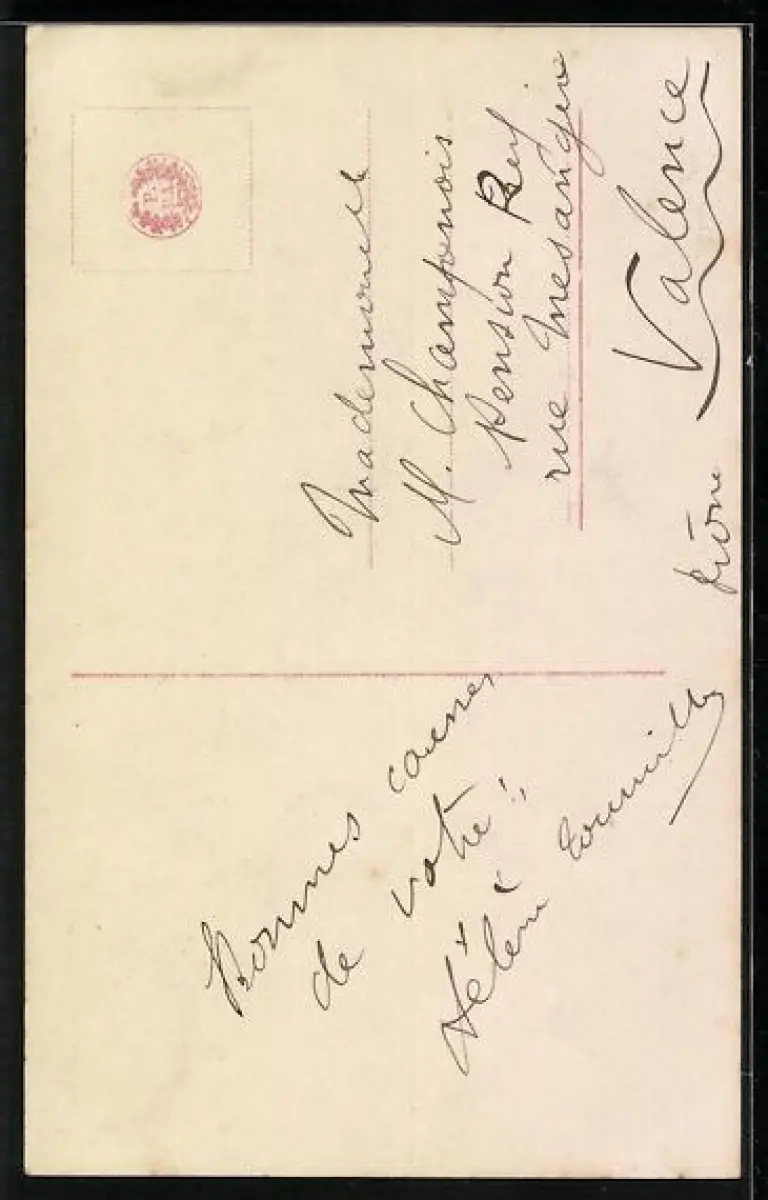 Bonnes
de votre !
Hélène
Mademoiselle
M. Champenois
Pension Rey
rue Mésangère
Valence
Drôme